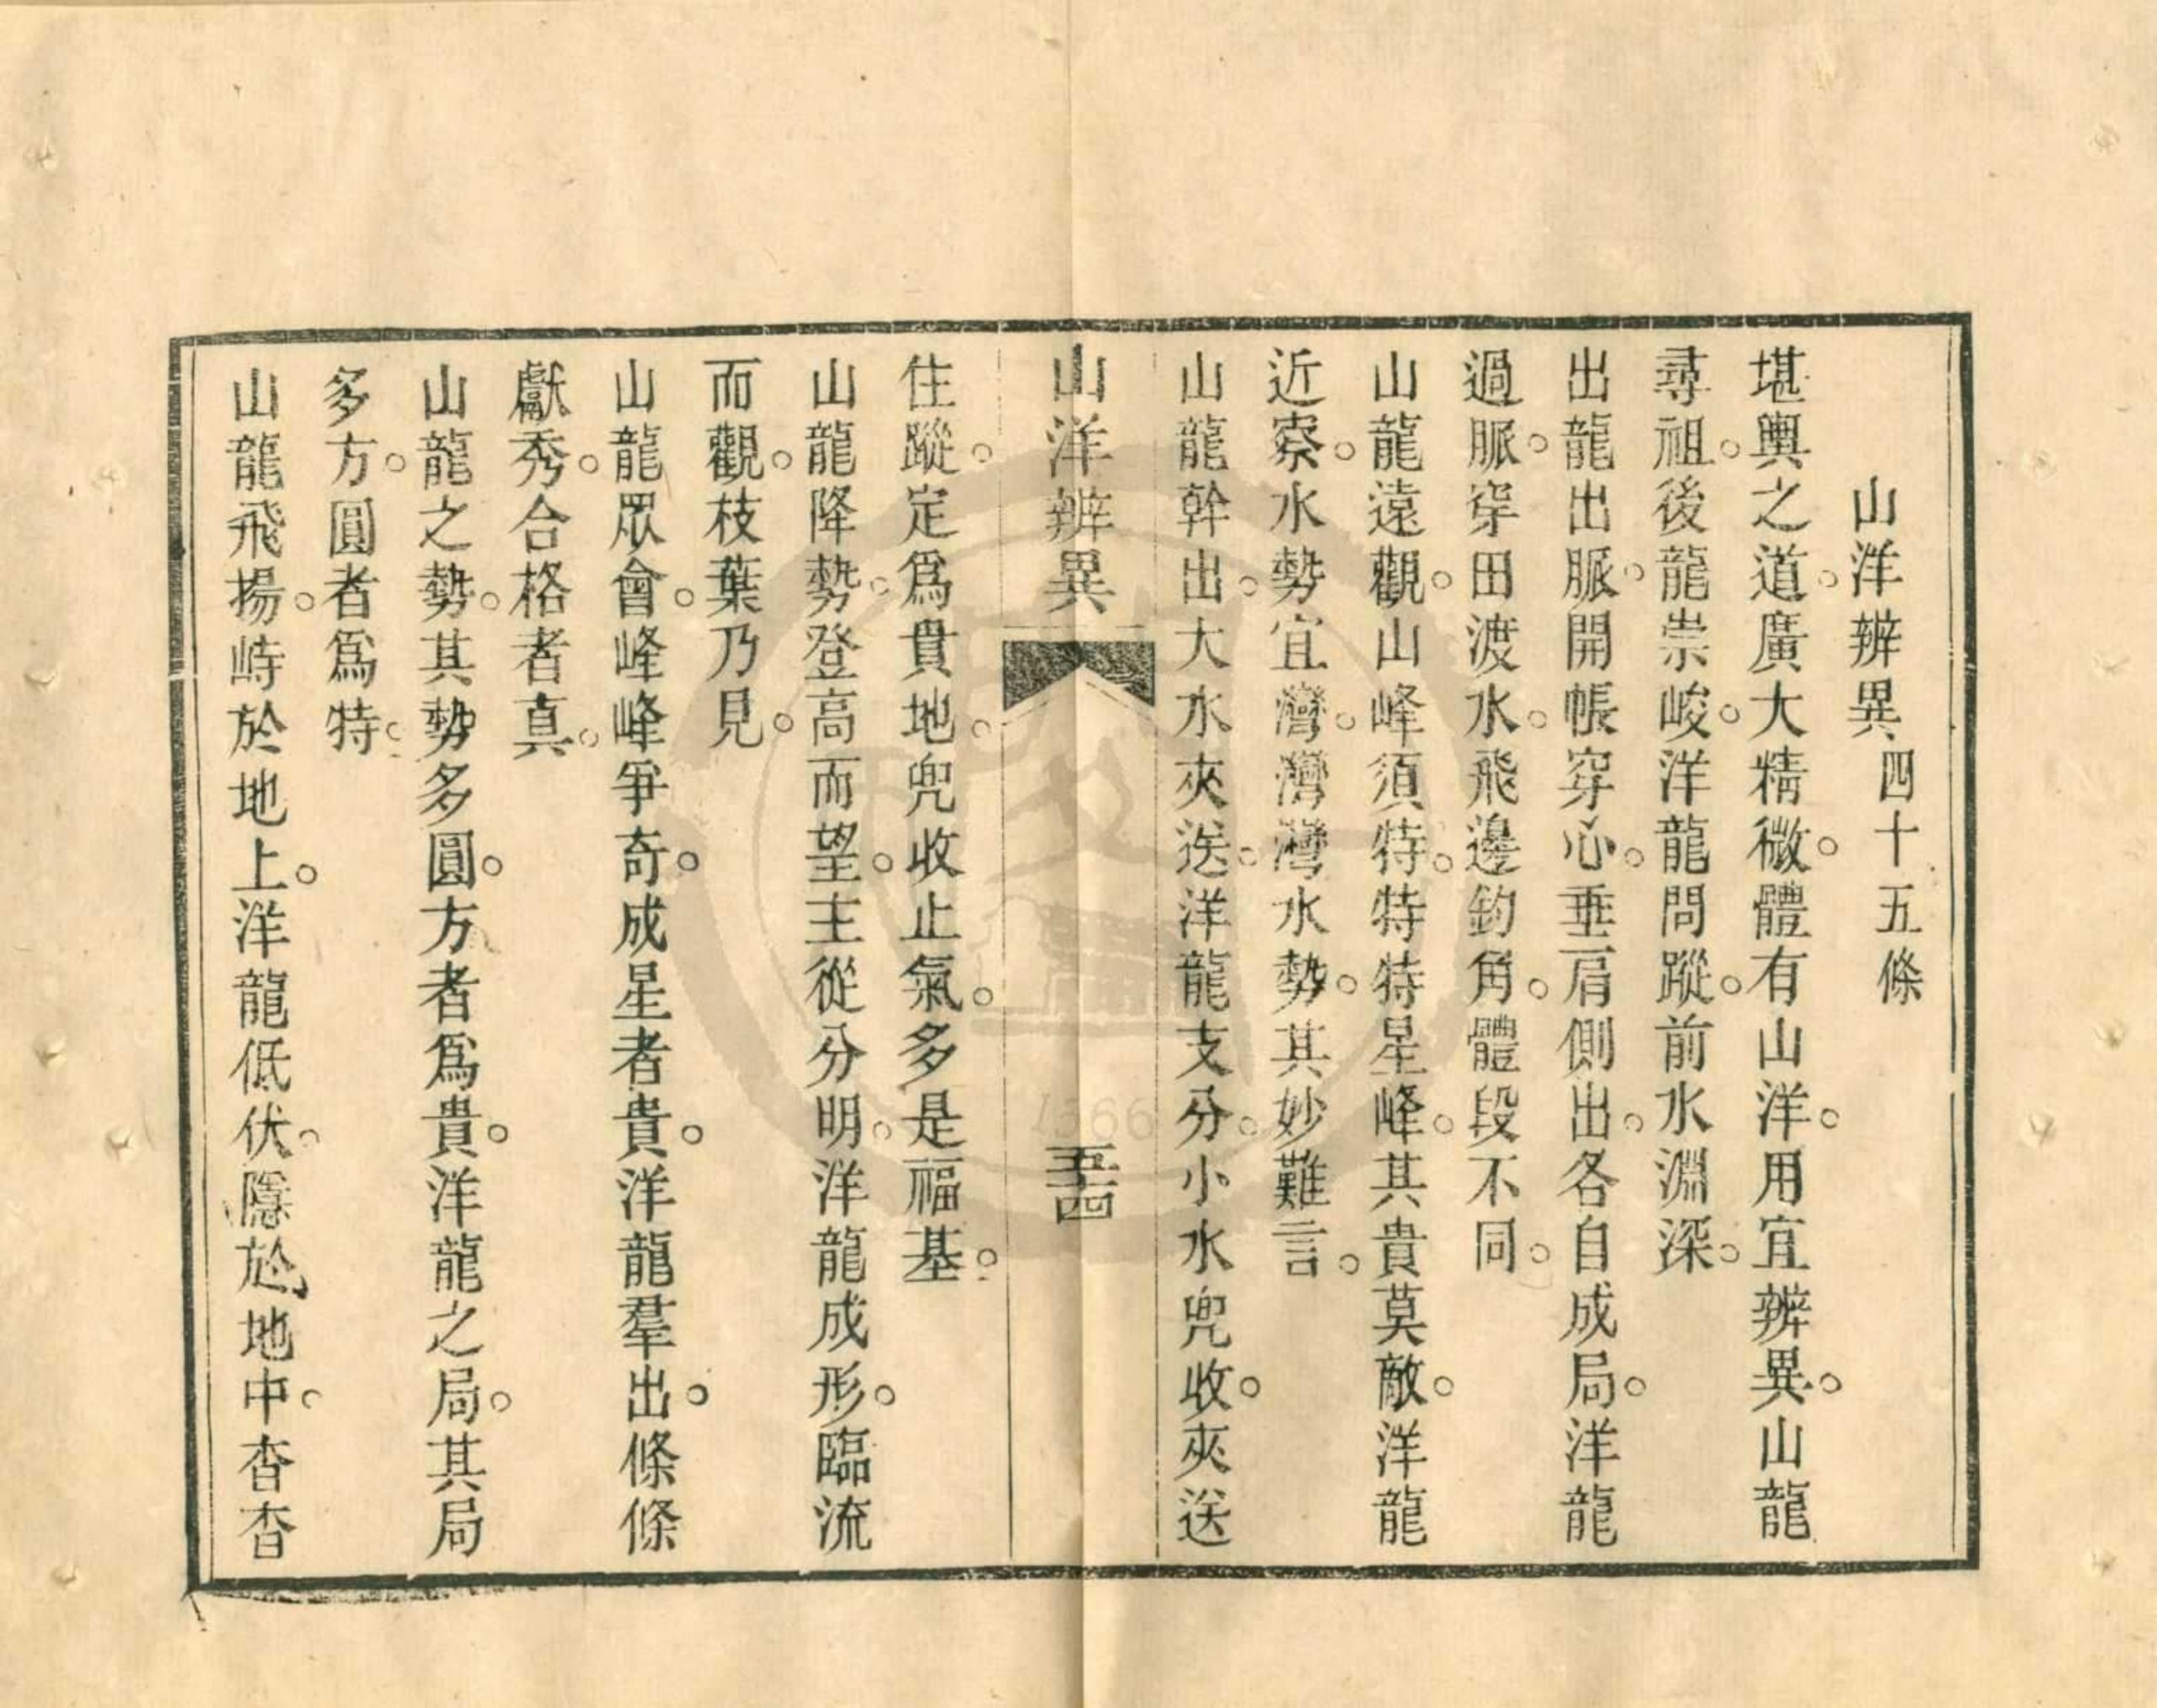 山洋辨異四十五條
堪輿之道。廣大精微。體有山洋。用宜辨異。山龍
尋祖。後龍崇峻。洋龍問蹤。前水淵深。
出龍出脈。開帳穿心。垂肩側出。各自成局。洋龍
過脈。穿田渡水。飛邊鈎角。體段不同。
山龍遠觀。山峰須特。特特特星峰。其貴莫敵。洋龍
近察。水勢宜灣。灣灣水勢。其妙難言。
山龍幹出。大水夾送。洋龍支分。小水兜收。夾送
山洋辨異 五四
住蹤。定爲貫地。兜收止氣。多是福基。
山龍降勢。登高而望。主從分明。洋龍成形。臨流
而觀。枝葉乃見。
山龍眾會。峰峰爭奇。成星者貴。洋龍羣出。條條
獻秀。合格者真。
山龍之勢。其勢多圓。方者爲貴。洋龍之局。其局
多方。圓者爲特。
山龍飛揚。峙於地上。洋龍低伏。隱於地中。杳杳